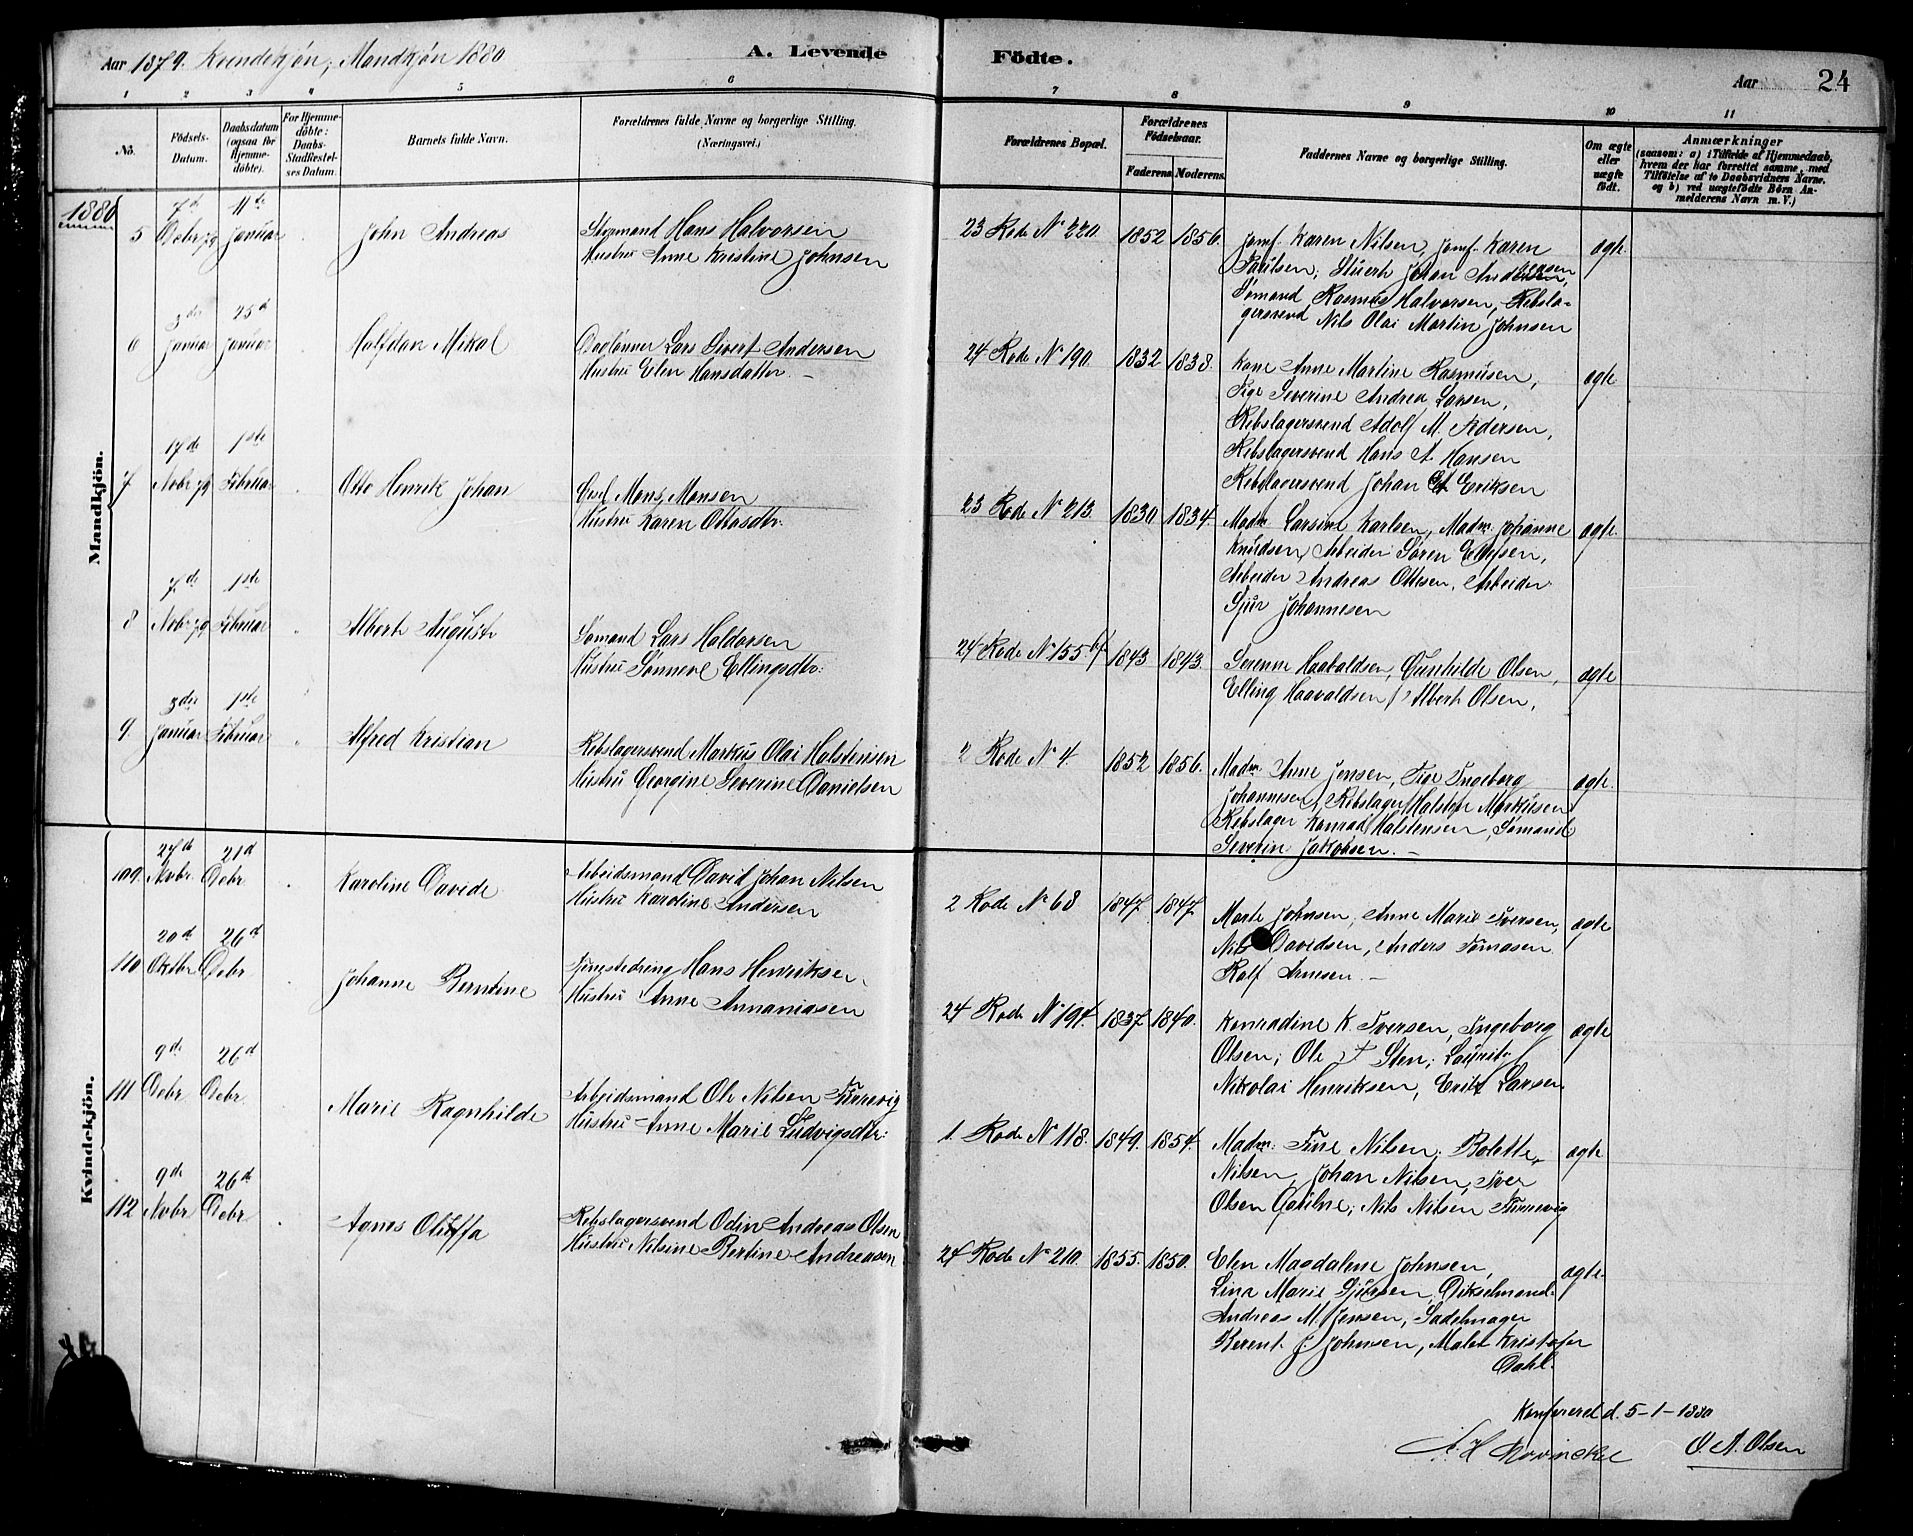 Aar 1879. Kvindekjøn, Mandkjøn 1880
A. Levende Födte.
Aar 24
1 2 3 4 5 6 7 8 9 10 11
No.
Födsels-Datum.
Daabsdatum (ogsaa for Hjemmedöbte).
For Hjemmedöbte: Daabs-Stadfæstelses Datum.
Barnets fulde Navn.
Forældrenes fulde Navne og borgerlige Stilling. (Næringsvei.)
Forældrenes Bopæl.
Forældrenes Födselsaar.
Faderens Moderens.
Faddernes Navne og borgerlige Stilling.
Om ægte eller uægte födt.
Anmærkninger
(saasom: a) i Tilfælde af Hjemmedaab, hvem der har forrettet samme, med Tilföielse af to Daabsvidners Navne, og b) ved uægtefödte Börn Anmelderens Navn m. V.)
1880
Mandkjön.
5 7de Debr 79 11te Januar John Andreas
Hans Halvorsen
Hustru Anne Kristine Johnsen
23 Rode No 220. 1852 1856.
Jomf. Karen Nilsen, Jomf. Karen
Paulsen, Stuert Johan Andersen,
Sømand Rasmus Halvorsen, Rebsla-
gersvend Nils Olai Martin Johnsen
ægte.
6 3die Januar 25d Januar Halfdan Mikal
Daglønner Lars Sivert Andersen
Hustru Elen Hansdatter
24 Rode No 190. 1832 1838.
Kone Anne Martine Rasmusen,
Pige Severine Andrea Larsen,
Rebslagersvend Adolf M. Pedersen,
Rebslagersvend Hans A. Hansen
Rebslagersvend Johan Eriksen
ægte
7 17de Novbr 79 1ste Februar Otto Henrik Johan
Mons Monsen
Hustru Karen Ottosdtr.
23 Rode No 213. 1830 1834.
Madm. Larsine Karlsen, Madm. Johanne
Knudsen, Arbeider Søren Ellefsen,
Arbeider Andreas Ottesen, Arbeider
Sjur Johannesen
ægte.
8 7de Novbr 79 1ste Februar Albert August
Sømand Lars Haldorsen
Hustru Sønneve Ellingsdtr.
24 Rode No 155 b/ 1843 1843.
Serenne Haavaldsen, Gunhilde Olsen,
Elling Haavaldsen, Albert Olsen,
ægte
9 3die Januar 1ste Februar Alfred Kristian
Rebslagersvend Markus Olai Halstensen
Hustru Georgine Severine Danielsen
2 Rode No 4. 1852 1856.
Madm. Anne Jensen, Pige Ingeborg
Johannesen, Rebslager Halsten Markusen
Rebslager Konrad Halstensen, Sømand
Severin Jakobsen.
ægte.
Kvindekjön.
109 27d Nvbr. 21d Debr Karoline Davide
Arbeidsmand David Johan Nilsen
Hustru Karoline Andersen
2 Rode No 68 1847. 1847.
Marte Johnsen, Anne Marie Iversen,
Nils Davidsen, Anders Tomasen
Rolf Arnesen.
ægte
110 20d Oktbr 26d Debr Johanne Berntine
Hans Henriksen,
Hustru Anne Annaniasen
24 Rode No 194. 1837 1840.
Konradine K. Iversen, Ingeborg
Olsen, Ole Sten, Lauritz
Nikolai Henriksen, Erik Larsen
ægte
111 9d Debr. 26d Debr. Marie Ragnhilde
Arbeidsmand Ole Nilsen Turrevig
Hustru Anne Marie Ludvigsdtr.
1. Rode No 118. 1849. 1854.
Madm. Tine Nilsen, Bolette
Nilsen, Johan Nilsen, Iver
Olsen Nils Nilsen Turrevig
ægte
112 9d Nvbr. 26d Debr. Agnes Oluffa
Rebslagersvend Odin Andreas Olsen
Hustru Nilsine Bertine Andreasen
24 Rode No 210. 1855. 1850.
Elen Magdalene Johnsen,
Lina Marie Sjursen, Dikselmand
Andreas M. Jensen, Sadelmager
Berent J. Johnsen, Maler Kristofer
Dahl.
ægte.
Konfereret d. 5-1-1880
A. H. Kovinckel O. A. Olsen